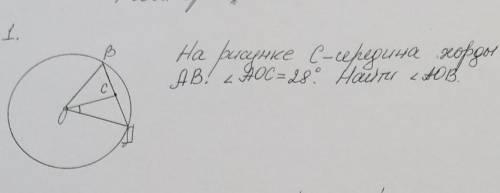 1.
На рисунке С-середина хорды
АВ. ∠АОС=28°. Найти ∠АОВ.
В
С
О